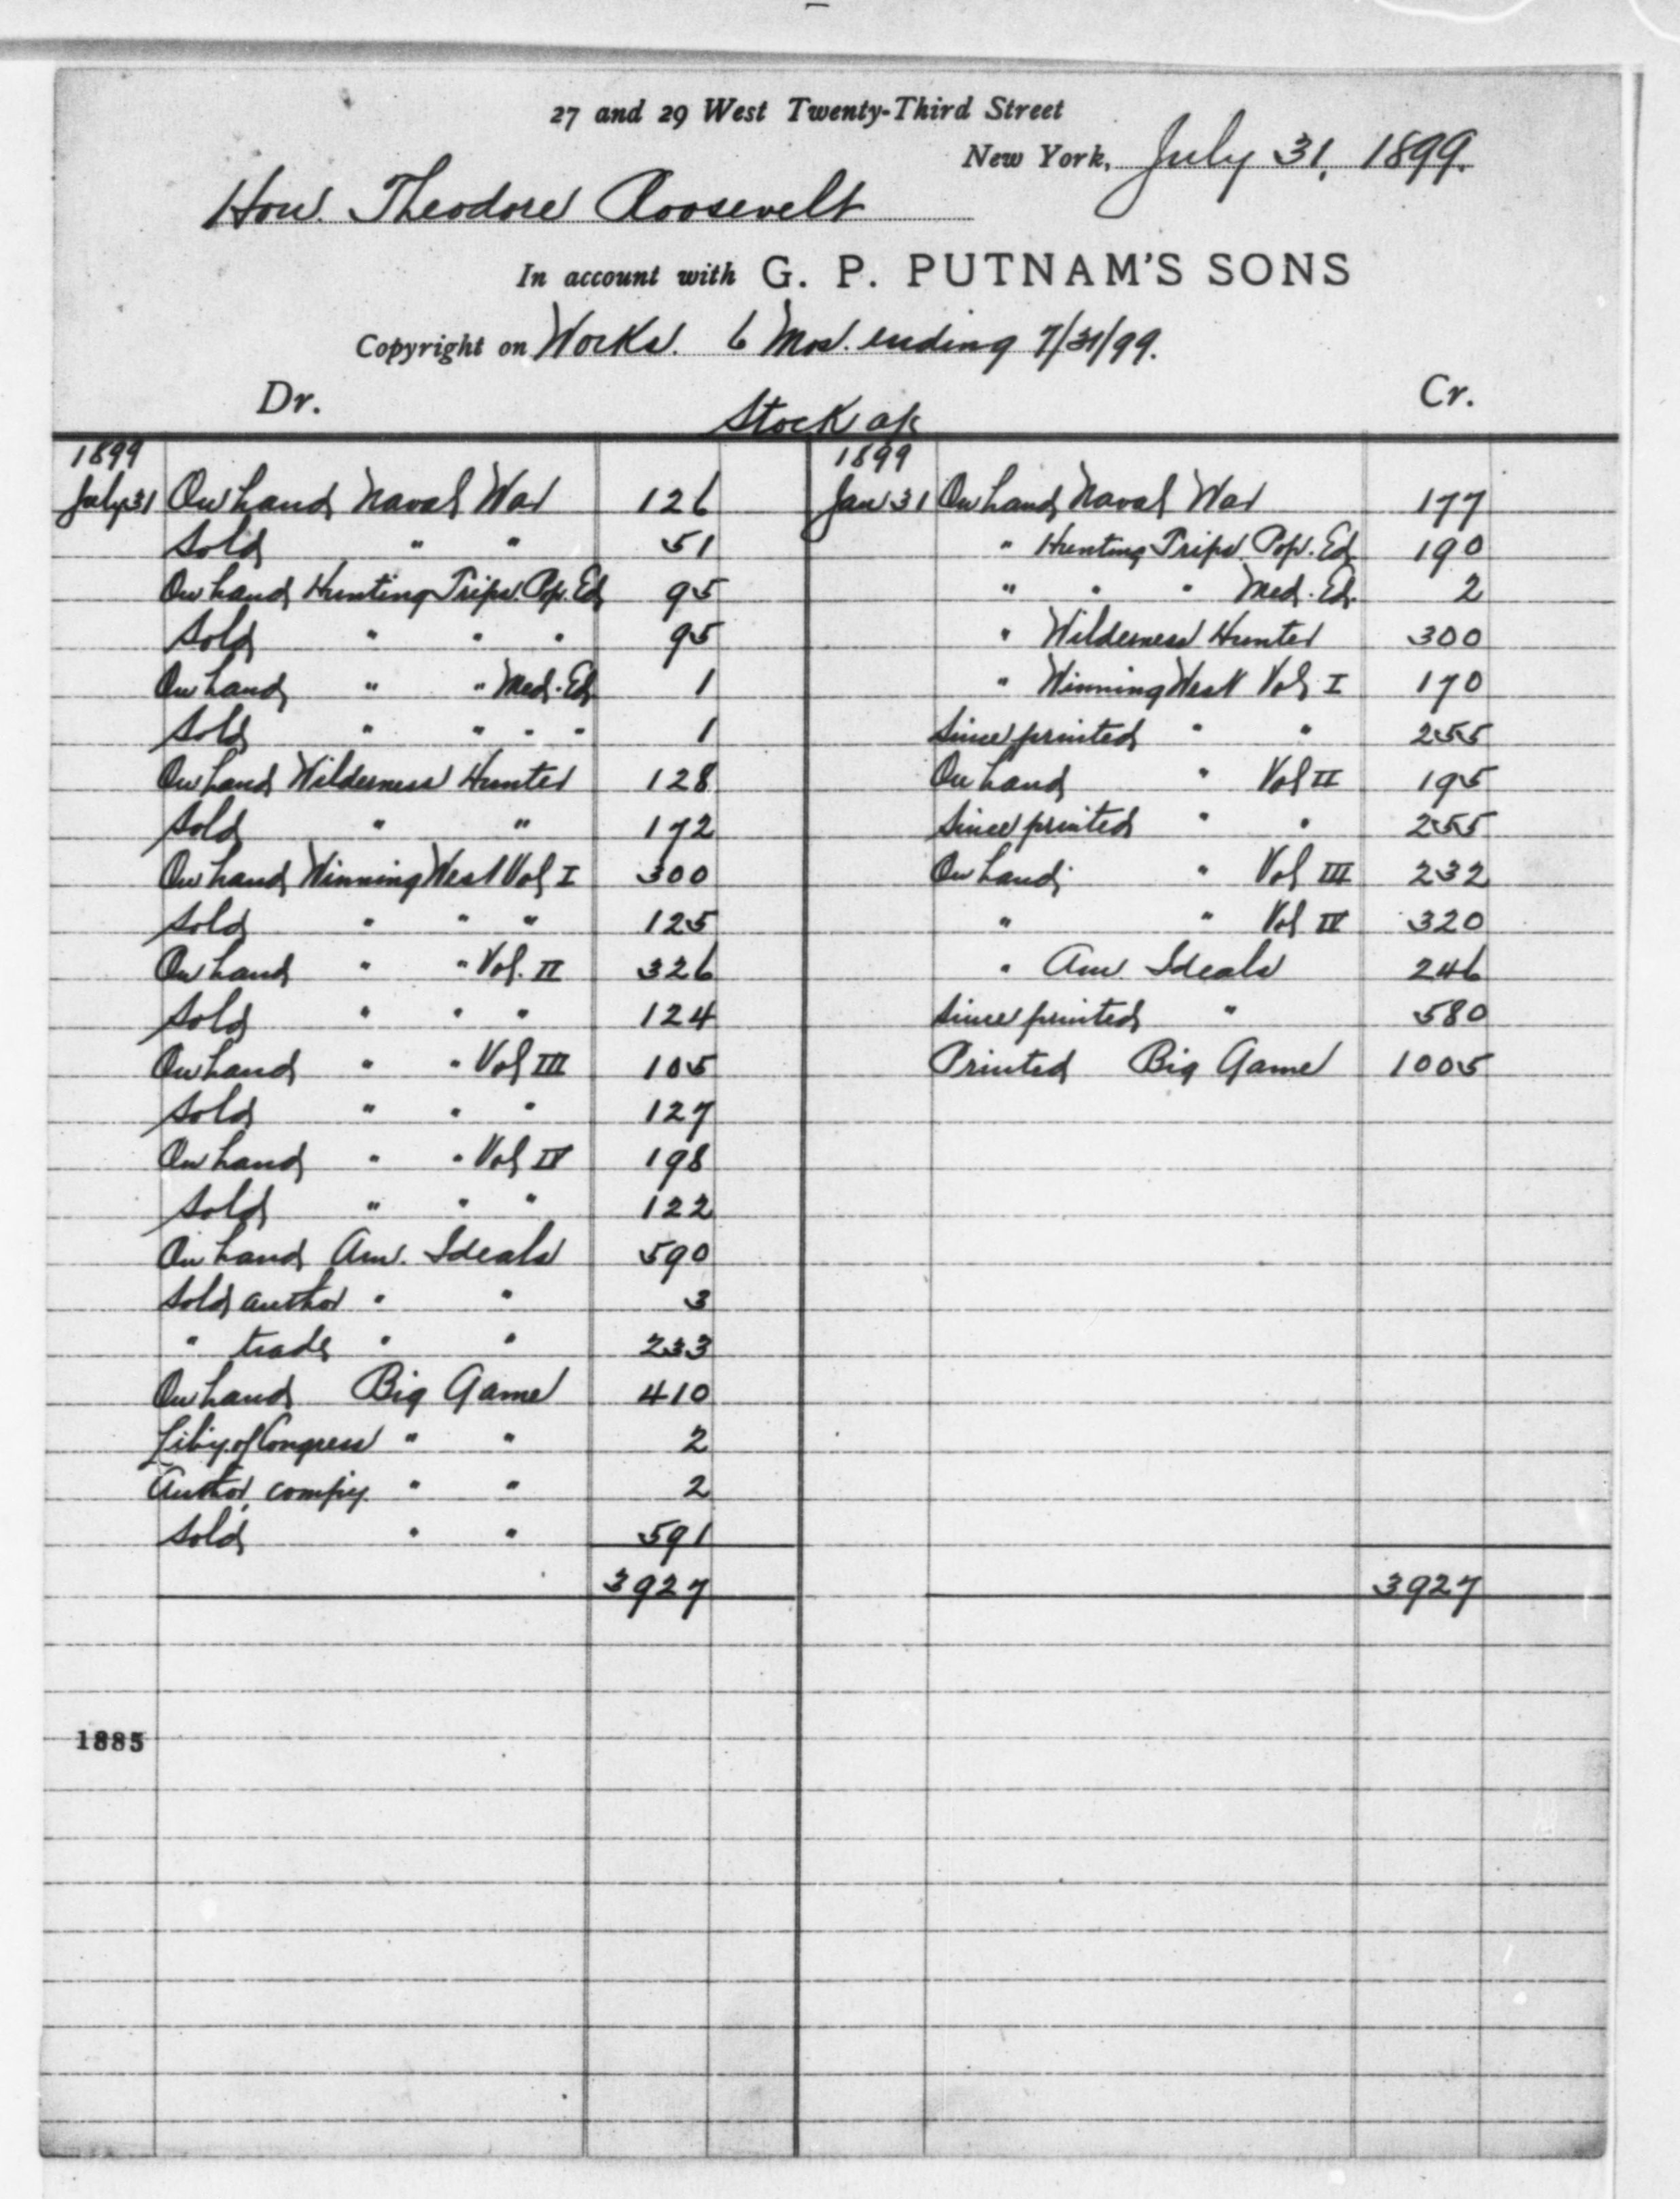 27 and 29 West Twenty-Third Street
New York, July 31, 1899.
Hon. Theodore Roosevelt
In account with G. P. PUTNAM'S SONS
Copyright on Works. 6 Mos. ending 7/31/99.
Dr. Stock a/c Cr.
1899
July 31 On hand Naval War 126
Sold " " 51
On hand Hunting Trips Pop. Ed 95
Sold " " " 95
On hand " " Med. Ed 1
Sold " " " " 1
On hand Wilderness Hunter 128
Sold " " 172
On hand Winning West Vol I 300
Sold " " " 125
On hand " " Vol. II 326
Sold " " " 124
On hand " " Vol III 105
Sold " " " 127
On hand " " Vol IV 198
Sold " " " 122
On hand Am. Ideals 590
Sold author " " 3
" trade " " 233
On hand Big Game 410
Liby. of Congress " " 2
Author, compy. " " 2
Sold " " 591
3927
1899
Jan 31 On hand Naval War 177
" Hunting Trips Pop. Ed 190
" " " Med. Ed. 2
" Wilderness Hunter 300
" Winning West Vol I 170
Since printed " " 255
On hand " Vol II 195
Since printed " " 255
On hand " Vol III 232
" " Vol IV 320
" Am. Ideals 246
Since printed " 580
Printed Big Game 1005
3927
1885